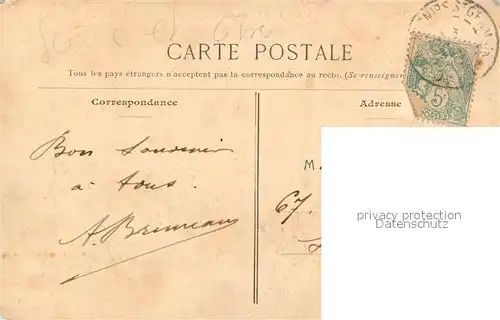 CARTE POSTALE
Tous les pays étrangers n'acceptent pas la correspondance au recto. (Se renseigner
Correspondance
Adresse
5
Bon souvenir
à tous.
M.
67.
privacy protection
Datenschutz